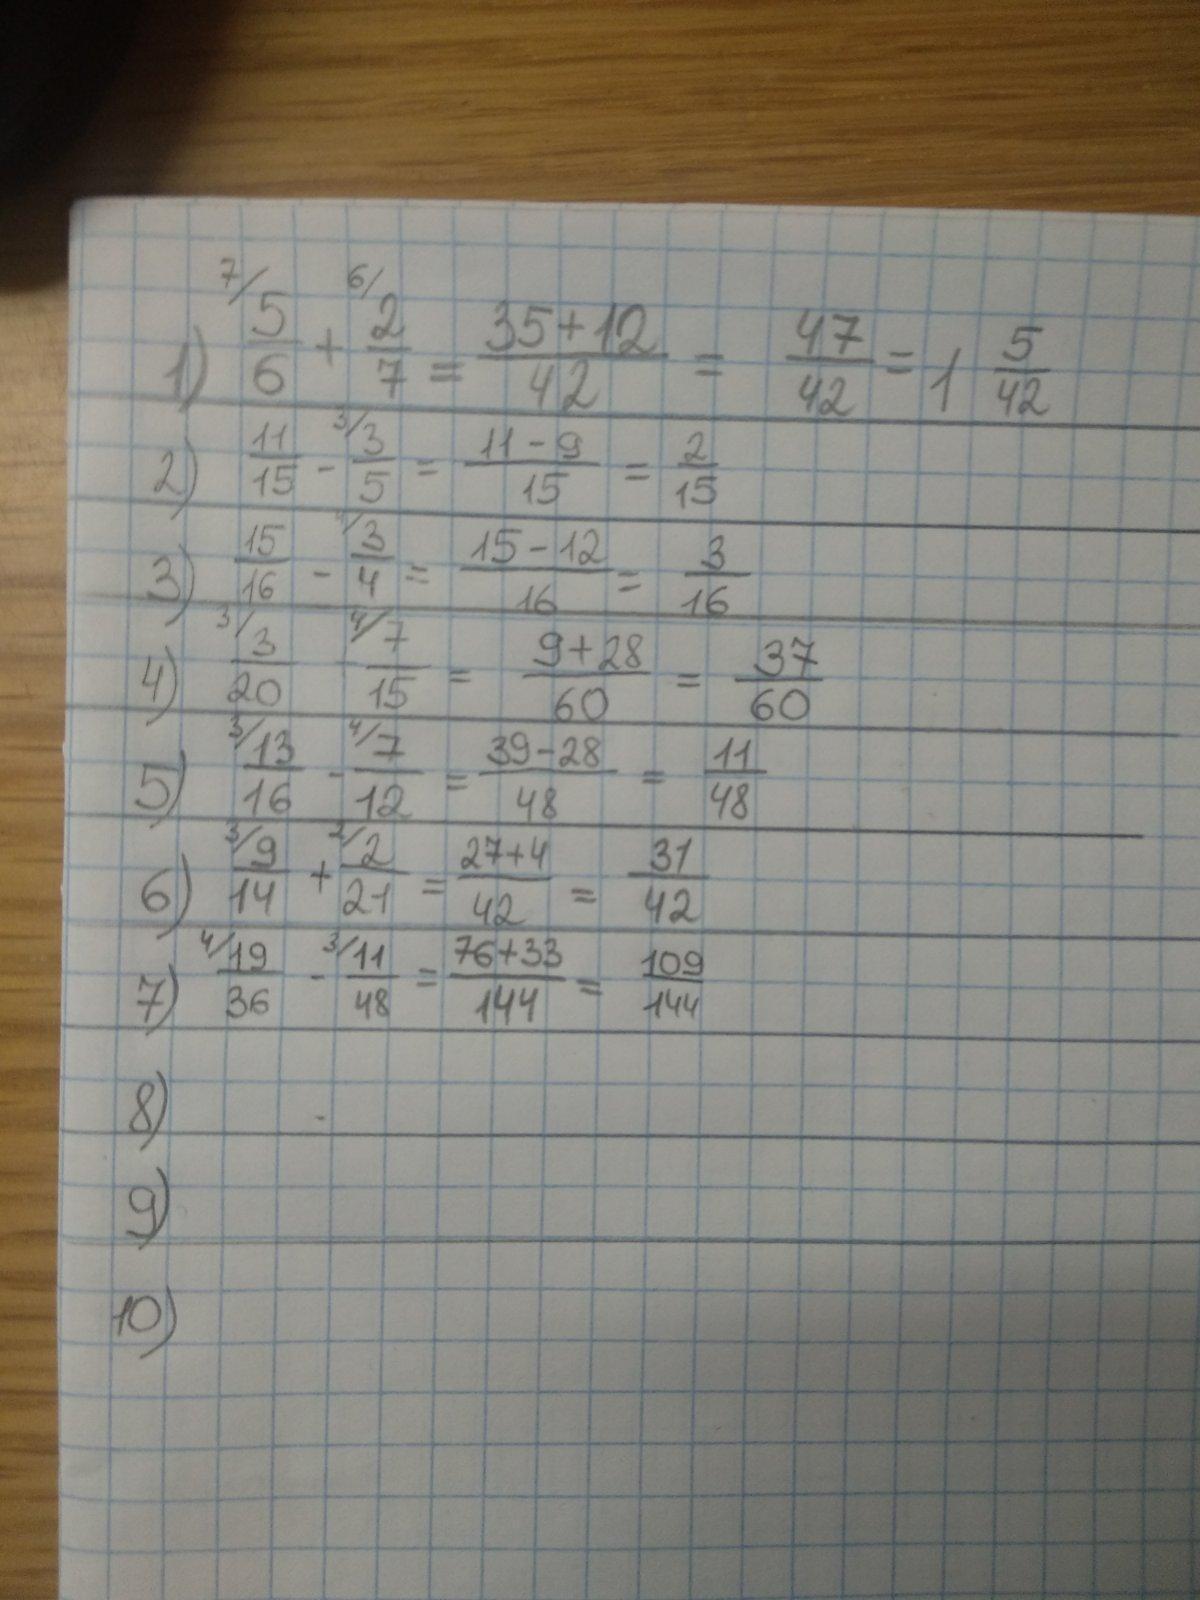 1) 7/ 5/6 + 6/ 2/7 = (35+12)/42 = 47/42 = 1 5/42
2) 11/15 - 3/ 3/5 = (11-9)/15 = 2/15
3) 15/16 - 4/ 3/4 = (15-12)/16 = 3/16
4) 3/ 3/20 - 4/ 7/15 = (9+28)/60 = 37/60
5) 3/ 13/16 - 4/ 7/12 = (39-28)/48 = 11/48
6) 3/ 9/14 + 2/ 2/21 = (27+4)/42 = 31/42
7) 4/ 19/36 - 3/ 11/48 = (76+33)/144 = 109/144
8) -
9)
10)